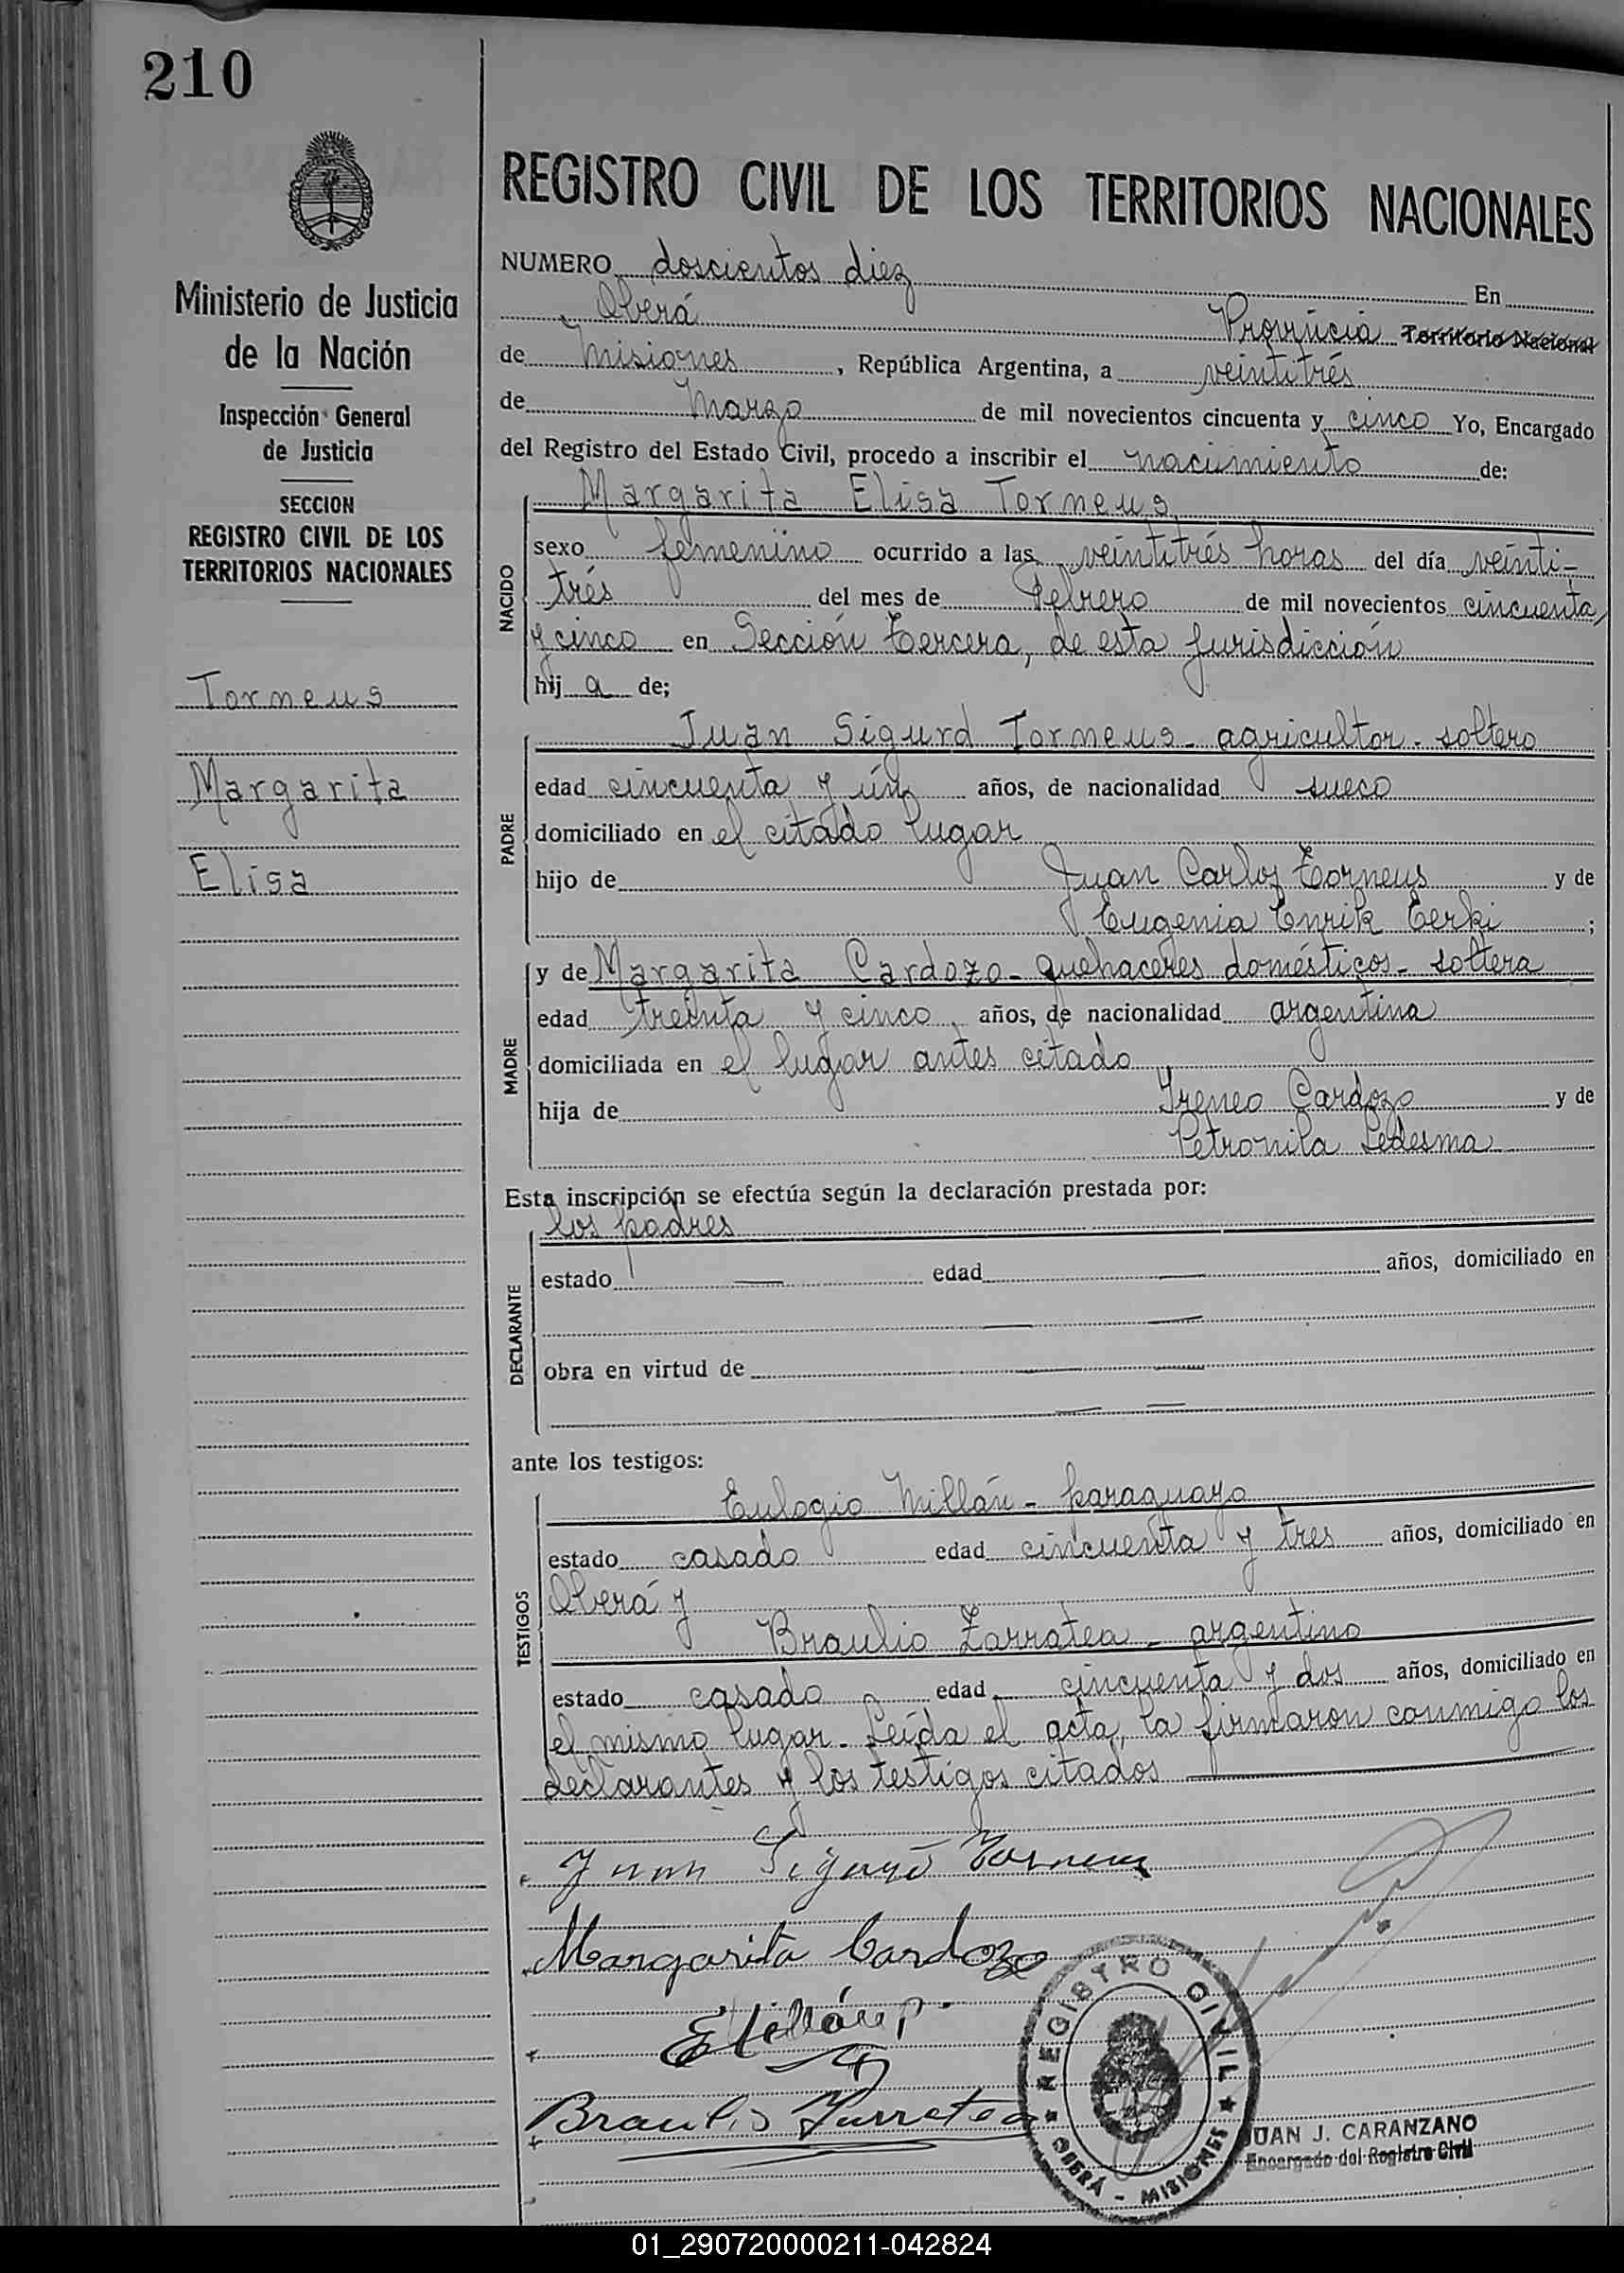 210
Ministerio de Justicia
de la Nación
Inspección General
de Justicia
SECCION
REGISTRO CIVIL DE LOS
TERRITORIOS NACIONALES
Torneus
Margarita
Elisa
REGISTRO CIVIL DE LOS TERRITORIOS NACIONALES
NUMERO doscientos diez En
Oberá Provincia Territorio Nacional
de Misiones, República Argentina, a veintitrés
de Marzo de mil novecientos cincuenta y cinco Yo, Encargado
del Registro del Estado Civil, procedo a inscribir el nacimiento de:
NACIDO
Margarita Elisa Torneus
sexo femenino ocurrido a las veintitrés horas del día veinti-
trés del mes de Febrero de mil novecientos cincuenta
y cinco en Sección Tercera, de esta Jurisdicción
hij a de;
PADRE
Juan Sigurd Torneus - agricultor - soltero
edad cincuenta y un años, de nacionalidad sueco
domiciliado en el citado lugar
hijo de Juan Carlos Torneus y de
Eugenia Enrik Eerki;
MADRE
y de Margarita Cardozo - quehaceres domésticos - soltera
edad treinta y cinco años, de nacionalidad argentina
domiciliada en el lugar antes citado
hija de Ireneo Cardozo y de
Petronila Ledesma
Esta inscripción se efectúa según la declaración prestada por:
DECLARANTE
los padres
estado — edad — años, domiciliado en
— —
obra en virtud de — —
— —
ante los testigos:
TESTIGOS
Eulogio Millán - paraguayo
estado casado edad cincuenta y tres años, domiciliado en
Oberá y
Braulio Zarratea - argentino
estado casado edad cincuenta y dos años, domiciliado en
el mismo lugar - Leída el acta, la firmaron conmigo los
declarantes y los testigos citados
Juan Sigurd Torneus
Margarita Cardozo
Braulio Zarratea
REGISTRO CIVIL
OBERÁ - MISIONES
JUAN J. CARANZANO
Encargado del Registro Civil
01_290720000211-042824